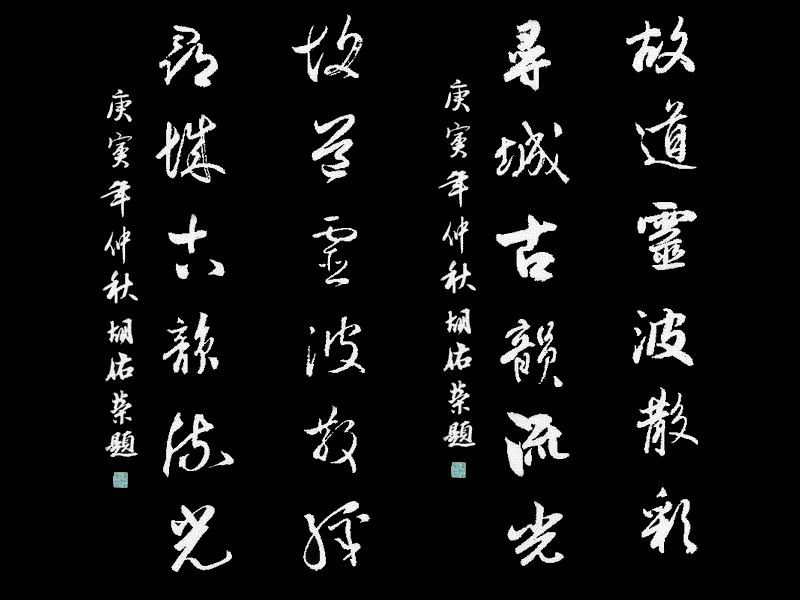 故道靈波散彩
尋城古韻流光
庚寅年仲秋胡佑荣題
故道靈波散彩
尋城古韻流光
庚寅年仲秋胡佑荣題